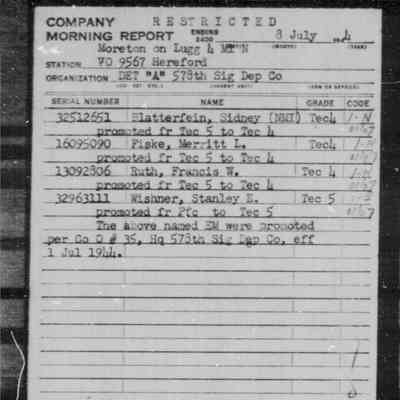 RESTRICTED
COMPANY
MORNING REPORT ENDING 2400 8 July 4
(MONTH) (YEAR)
Moreton on Lugg 4 MI N
STATION VO 9567 Hereford
ORGANIZATION DET "A" 578th Sig Dep Co
SERIAL NUMBER NAME GRADE CODE
32512651 Blatterfein, Sidney (NMI) Tec4
promoted fr Tec 5 to Tec 4
16095090 Fiske, Merritt L. Tec4
promoted fr Tec 5 to Tec 4
13092806 Ruth, Francis W. Tec 4
promoted fr Tec 5 to Tec 4
32963111 Wishner, Stanley E. Tec 5
promoted fr Pfc to Tec 5
The above named EM were promoted
per Co O # 35, Hq 578th Sig Dep Co, eff
1 Jul 1944.